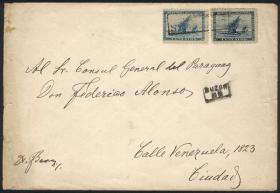 Al Sr. Consul General del Paraguay
Don Federico Alonso
BUZON
Calle Venezuela, 1823
Ciudad